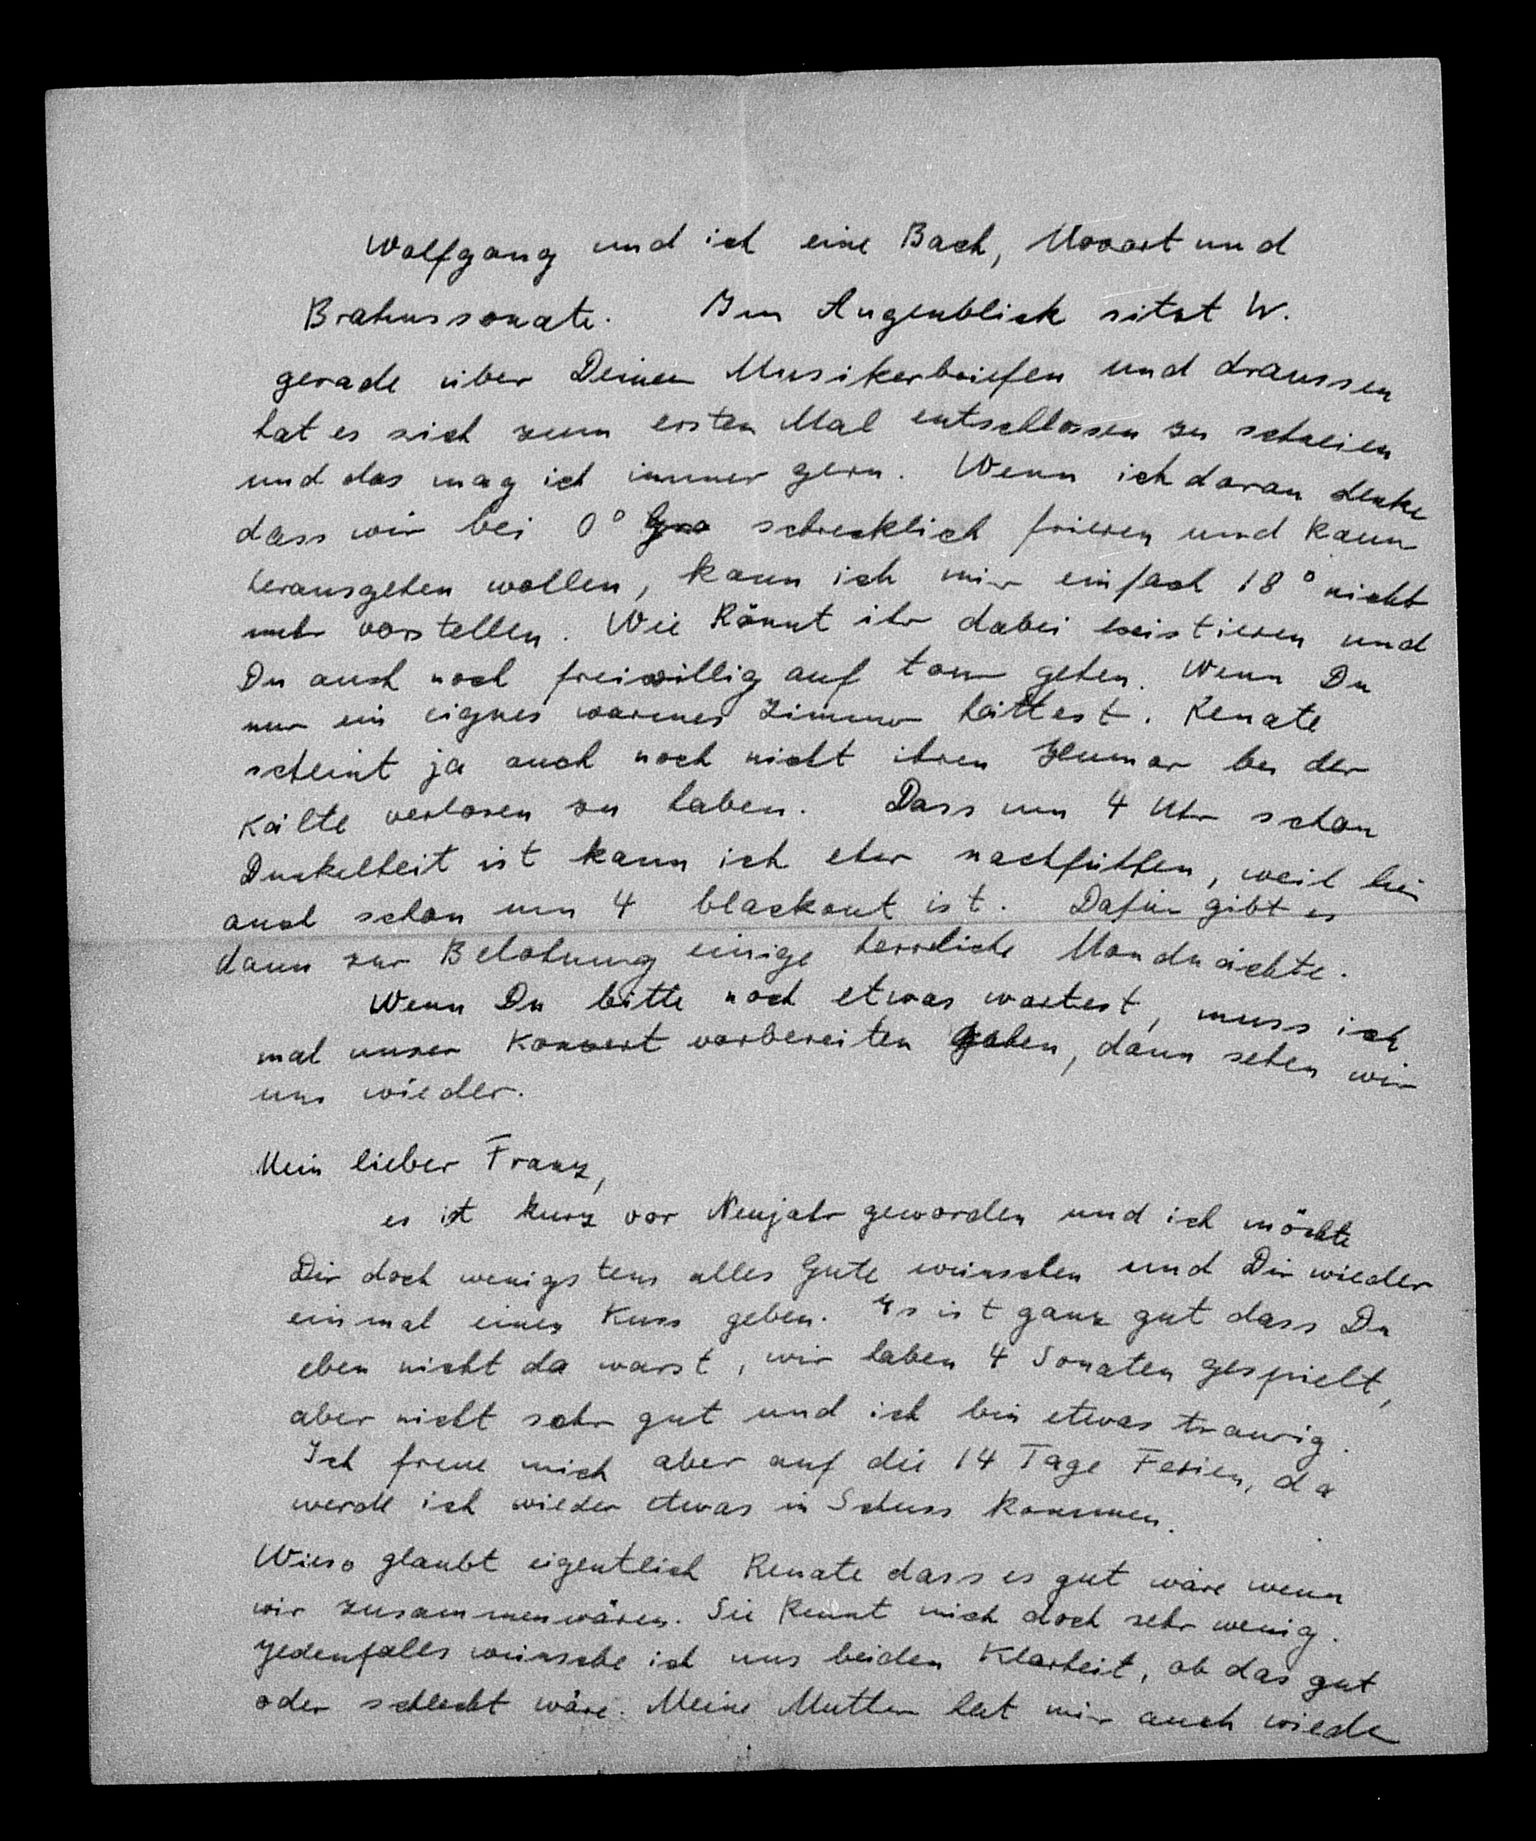 Wolfgang und ich eine Bach, Mozart und
Brahmssonate. Im Augenblick sitzt W.
gerade über Deinen Musikerbriefen und draussen
hat es sich zum ersten Mal entschlossen zu schneien
und das mag ich immer gern. Wenn ich daran denke
dass wir bei 0° schrecklich frieren und kaum
herausgehen wollen, kann ich mir einfach 18° nicht
mehr vorstellen. Wie könnt ihr dabei existieren und
Du auch noch freiwillig auf tour gehen. Wenn Du
nur ein eignes warmes Zimmer hättest. Renate
scheint ja auch noch nicht ihren Humor bei der
Kälte verloren zu haben. Dass um 4 Uhr schon
Dunkelheit ist kann ich eher nachfühlen, weil hier
auch schon um 4 blackout ist. Dafür gibt es
dann zur Belohnung einige herrliche Mondnächte.
Wenn Du bitte noch etwas wartest, muss ich
mal unser Konzert vorbereiten gehen, dann sehen wir
uns wieder.
Mein lieber Franz,
es ist kurz vor Neujahr geworden und ich möchte
Dir doch wenigstens alles Gute wünschen und Dir wieder
einmal einen Kuss geben. Es ist ganz gut dass Du
eben nicht da warst, wir haben 4 Sonaten gespielt,
aber nicht sehr gut und ich bin etwas traurig.
Ich freue mich aber auf die 14 Tage Ferien, da
werde ich wieder etwas in Schuss kommen.
Wieso glaubt eigentlich Renate dass es gut wäre wenn
wir zusammenwären. Sie kennt mich doch sehr wenig.
Jedenfalls wünsche ich uns beiden Klarheit, ob das gut
oder schlecht wäre. Meine Mutter hat mir auch wieder